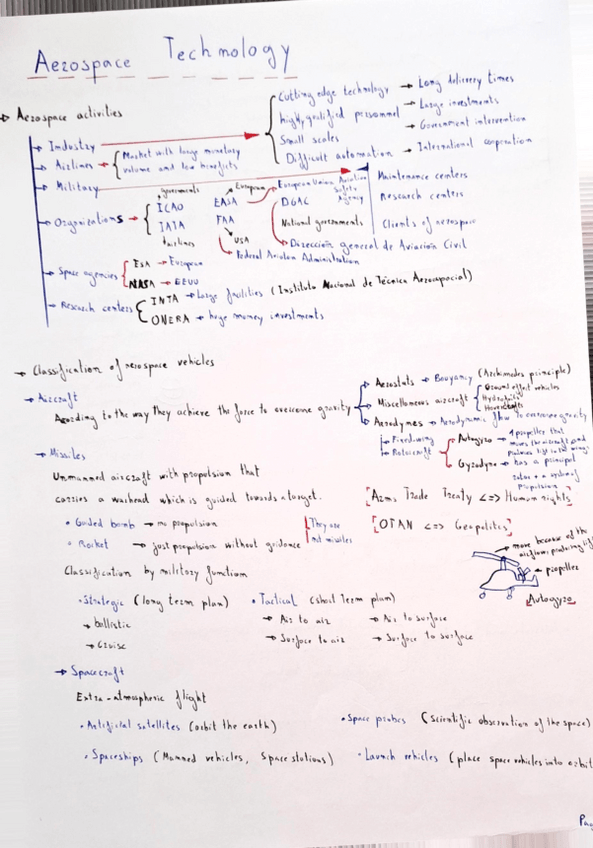 Aerospace Technology
→ Aerospace activities
→ Industry
Cutting edge technology → Long delivery times
highly qualified personnel → Large investments
Small scales → Government intervention
Difficult automation → International corporation
→ Airlines → Market with large monetary
volume and low benefits
→ Military
Maintenance centers
Research centers
Clients of aerospace
→ Organizations →
governments
ICAO
IATA
airlines
European
EASA → European Union Aviation
Safety
Agency
FAA
USA
Federal Aviation Administration
DGAC
National governments
Dirección general de Aviación Civil
→ Space agencies
ESA → European
NASA → EEUU
→ Research centers
INTA → Large facilities (Instituto Nacional de Técnica Aeroespacial)
ONERA → huge money investments
→ Classification of aerospace vehicles
→ Aircraft
According to the way they achieve the force to overcome gravity
→ Aerostats → Bouyancy (Archimedes principle)
→ Miscellaneous aircraft
Ground effect vehicles
Hydrofoils
→ Aerodymes → Aerodynamic flow to overcome gravity
→ Fixed wing
→ Rotorcraft
Autogyro → A propeller that
moves the aircraft and
produces lift in the wings
Gyrodyne → has a principal
rotor + a system of
propulsion
→ Missiles
Unmanned aircraft with propulsion that
carries a warhead which is guided towards a target.
• Guided bomb → no propulsion
• Rocket → just propulsion without guidance
They are
not missiles
[Arms Trade Treaty <=> Human rights]
[OTAN <=> Geopolitics]
→ move because of the
airflow producing lift
→ propeller
Autogyro
Classification by military function
• Strategic (long term plan)
→ ballistic
→ Cruise
• Tactical (short term plan)
→ Air to air → Air to surface
→ Surface to air → Surface to surface
→ Spacecraft
Extra-atmospheric flight
• Artificial satellites (orbit the earth) • Space probes (scientific observation of the space)
• Spaceships (Manned vehicles, Space stations) • Launch vehicles (place space vehicles into orbit